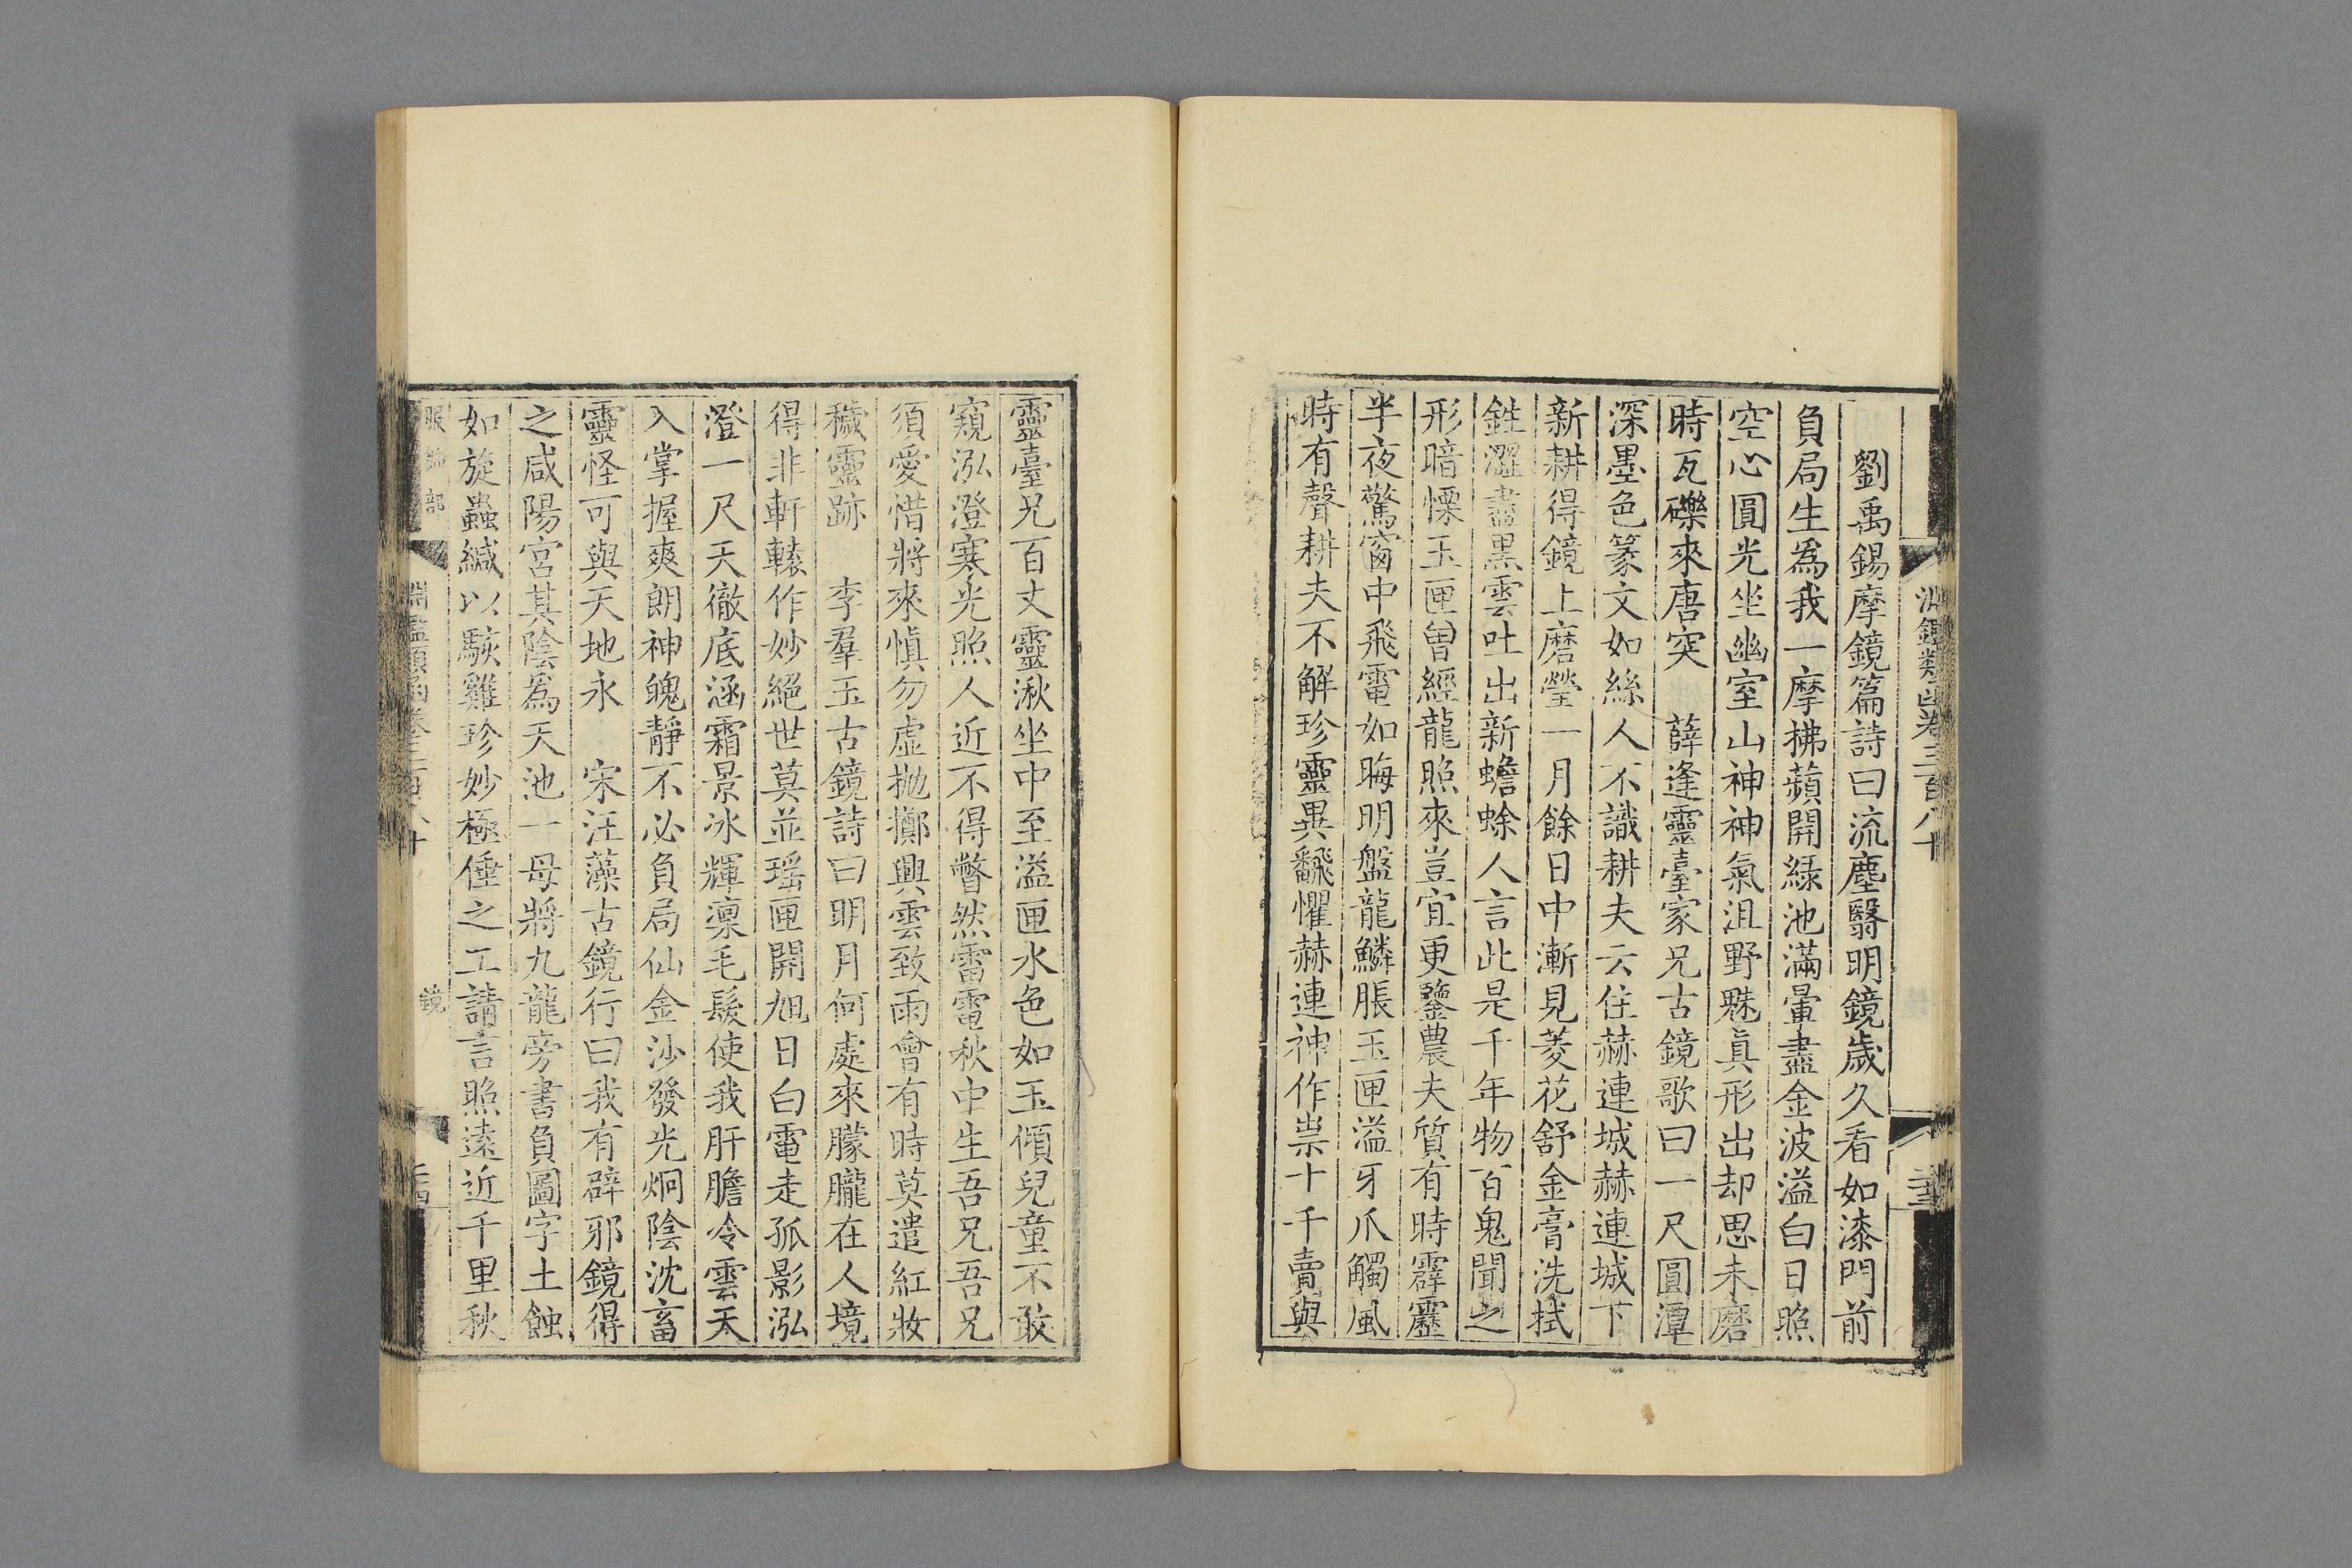 淵鑑類函卷三百八十
劉禹錫摩鏡篇詩曰流塵翳明鏡歲久看如漆門前
負局生爲我一摩拂蘋開綠池滿暈盡金波溢白日照
空心圓光坐幽室山神神氣沮野魅眞形出却思未磨
時瓦礫來唐突 薛逢靈臺家兄古鏡歌曰一尺圓潭
深墨色篆文如絲人不識耕夫云住赫連城赫連城下
新耕得鏡上磨瑩一月餘日中漸見菱花舒金膏洗拭
鉎澀盡黒雲吐出新蟾蜍人言此是千年物百鬼聞之
形暗慄玉匣曾經龍照來豈宜更鑒農夫質有時霹靂
半夜驚窗中飛電如晦明盤龍鱗脹玉匣溢牙爪觸風
時有聲耕夫不解珍靈異翻懼赫連神作祟十千賣與
靈臺兄百丈靈湫坐中至溢匣水色如玉傾兒童不敢
窺泓澄寒光照人近不得瞥然雷電秋中生吾兄吾兄
須愛惜將來愼勿虛拋擲興雲致雨會有時莫遣紅妝
穢靈跡 李羣玉古鏡詩曰明月何處來朦朧在人境
得非軒轅作妙絕世莫並瑶匣開旭日白電走孤影泓
澄一尺天徹底涵霜景冰輝凜毛髮使我肝膽令雲天
入掌握爽朗神魄靜不必負局仙金沙發光炯陰沈畜
靈怪可與天地永 宋汪藻古鏡行曰我有辟邪鏡得
之咸陽宮其陰爲天池一母將九龍旁書負圖字土蝕
如旋蟲緘以駭雞珍妙極倕之工請言照遠近千里秋
服飾部 淵鑑類函卷三百八十 鏡